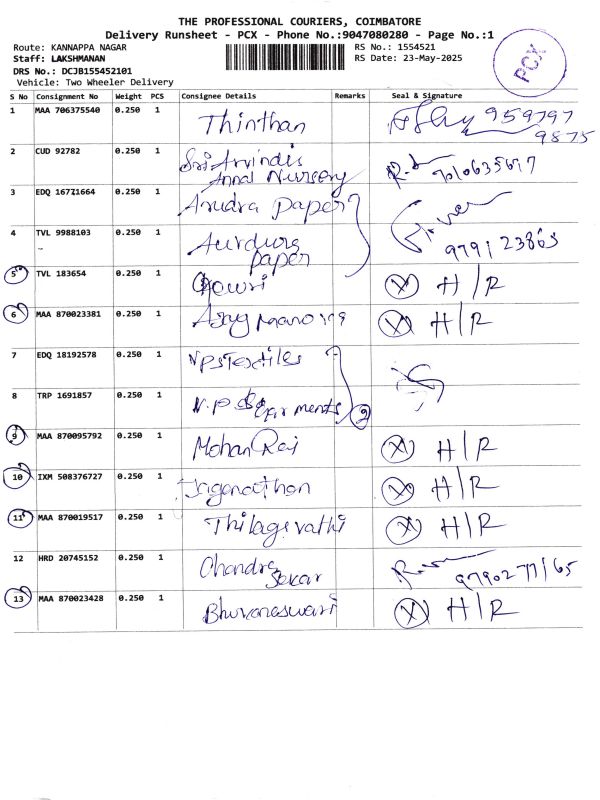 THE PROFESSIONAL COURIERS, COIMBATORE
Delivery Runsheet - PCX - Phone No.:9047080280 - Page No.:1
Route: KANNAPPA NAGAR
Staff: LAKSHMANAN
DRS No.: DCJB155452101
Vehicle: Two Wheeler Delivery
RS No.: 1554521
RS Date: 23-May-2025
PCX
S No Consignment No Weight PCS Consignee Details Remarks Seal & Signature
1 MAA 706375540 0.250 1 Thinthan 959797
9875
2 CUD 92782 0.250 1 Sri Arvindis
Annai Nursery
3 EDQ 16771664 0.250 1 Anudra paper
4 TVL 9988103 0.250 1 paper 9791 23865
5 TVL 183654 0.250 1 Gowri X H/R
6 MAA 870023381 0.250 1 X H/R
7 EDQ 18192578 0.250 1 NPS Textiles
8 TRP 1691857 0.250 1 N.P.S Garments 2
9 MAA 870095792 0.250 1 Mohan Raj X H/R
10 IXM 508376727 0.250 1 Jaganathan X H/R
11 MAA 870019517 0.250 1 Thilagavathi X H/R
12 HRD 20745152 0.250 1 Chandra
Sekar 9790277165
13 MAA 870023428 0.250 1 Bhuvaneswari X H/R